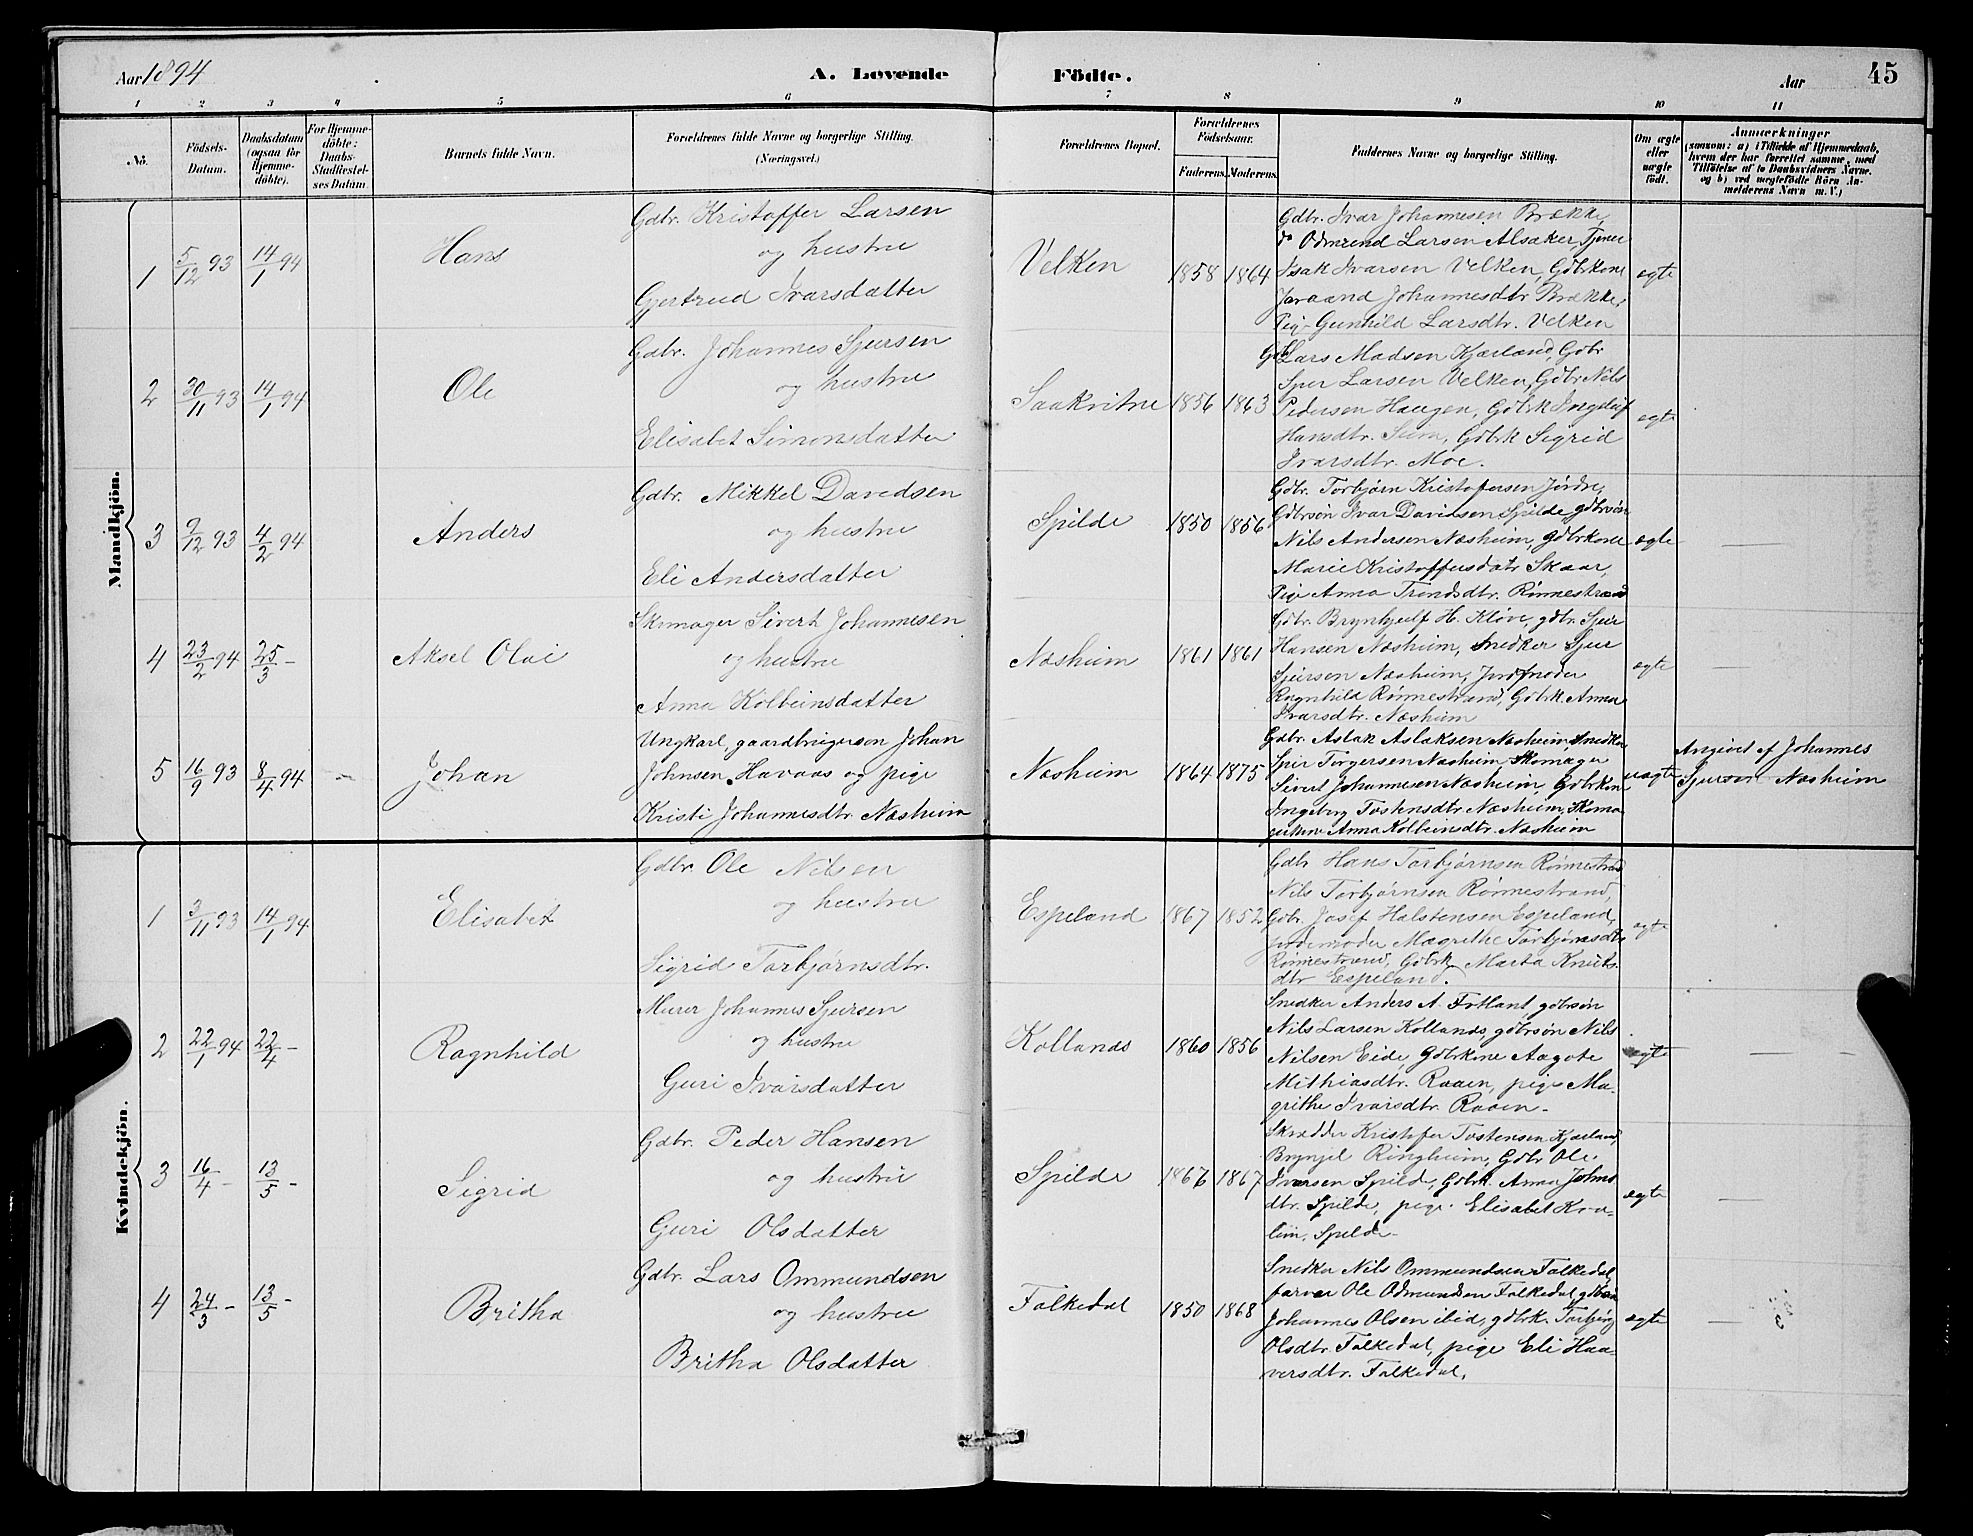 Aar 1894
A. Levende
Födte.
Aar
45
1 2 3 4 5 6 7 8 9 10 11
No.
Födsels-Datum.
Daabsdatum (ogsaa for Hjemme-döbte).
For Hjemme-döbte: Daabs-Stadfæstel-ses Datum.
Barnets fulde Navn.
Forældrenes fulde Navne og borgerlige Stilling.
(Næringsvei.)
Forældrenes Bopæl.
Forældrenes Födselsaar.
Faderens. Moderens.
Faddernes Navne og borgerlige Stilling.
Om ægte eller uægte födt.
Anmærkninger
(saasom: a) i Tilfælde af Hjemmedaab, hvem der har forrettet samme, med Tilföielse af to Daabsvidners Navne, og b) ved uægtefödte Börn An-melderens Navn m. V.)
Mandkjön.
1 5/12 93 14/1 94 Hans
Gdbr. Kristoffer Larsen
og hustru
Gjertrud Ivarsdatter
Velken 1858 1864
Gdbr. Ivar Johannesen Brække,
do Odmund Larsen Alsaker Tjener
Isak Ivarsen Velken, Gdbrkone
Johannesdtr Brække,
Pige Gunhild Larsdtr. Velken
ægte
2 30/11 93 14/1 94 Ole
Gdbr. Johannes Sjursen
og hustru
Elisabet Simonsdatter
Saakvitne 1856 1863
Gdb Lars Madsen Kjærland, Gdbr
Sjur Larsen Velken, Gdbr Nils
Pedersen Haugen, Gdbrk
Hansdtr. Seim, Gdbrk Sigrid
Ivarsdtr. Moe.
ægte
3 9/12 93 4/2 94 Anders
Gdbr. Mikkel Davidsen
og hustru
Eli Andersdatter
Spilde 1850 1856
Gdbr. Torbjörn Kristofersen Jördre,
Gdbrsön Ivar Davidsen Spilde, gdbrsön
Nils Andersen Næsheim, gdbrkone
Marie Kristoffersdatr Skaar,
Pige Anna Trondsdtr. Rönnestrand
ægte
4 23/2 94 25/3 - Aksel Olai
Skomager Sivert Johannesen
og hustru
Anna Kolbeinsdatter
Næsheim 1861 1861
Gdbr. Brynhjulf H. Klöve, gdbr. Sjur
Hansen Næsheim, Snedker Sjur
Sjursen Næsheim, Jordmoder
Ragnhild Rönnestrand, Gdbrk. Anna
Ivarsdtr. Næsheim
ægte
5 16/9 93 8/4 94 - Johan
Ungkarl, gaardbrugerson Johan
Johnsen Havaas og pige
Kristi Johannesdtr. Næsheim
Næsheim 1864 1875
Gdbr. Aslak Aslaksen Næsheim, Snedker
Sjur Torgersen Næsheim, Skomager
Sivert Johannesen Næsheim, Gdbrkone
Ingeborg Tostensdtr Næsheim, Skoma-
gerkone Anna Kolbeinsdtr. Næsheim
uægte
Angivet af Johannes
Sjursen Næsheim
Kvindekjön.
1 3/11 93 14/1 94 Elisabet
Gdbr. Ole Nilsen
og hustru
Sigrid Torbjörnsdtr.
Espeland 1867 1852
Gdbr Hans Torbjörnsen Rönnestrand
Nils Torbjörnsen Rönnestrand,
Gdbr. Josef Halstensen Espeland,
jordemoder Magrethe Torbjörnsdtr
Rönnestrand, Gdbrk Marta Knuts-
dtr Espeland.
ægte
2 22/1 94 22/4 - Ragnhild
Murer Johannes Sjursen
og hustru
Guri Ivarsdatter
Kollands 1860 1856
Snedker Anders A. Folland, gdbrsön
Nils Larsen Kollands, gdbrsön Nils
Nilsen Eide, Gdbrkone Aagote
Mithiasdtr. Raaen, pige Ma-
grithe Ivarsdtr. Raaen -
ægte
3 16/4 - 13/5 - Sigrid
Gdbr. Peder Hansen
og hustru
Guri Olsdatter
Spilde 1867 1867
Skrædder Kristofer Tostensen Kjærland,
Brynjel Ringheim, Gdbr Ole
Iversen Spilde, Gdbrk. Anna Johns
dtr. Spilde, pige Elisabet
Spilde -
ægte
4 24/3 - 13/5 - Britha
Gdbr. Lars Ommundsen
og hustru
Britha Olsdatter
Folkedal 1850 1868
Snedker Nils Ommundsen Folkedal,
farver Ole Odmundsen Folkedal,
Johannes Olsen ibid, gdbrk. Torbjörg
Olsdtr. Folkedal, pige Eli Haa-
versdtr. Folkedal.
ægte